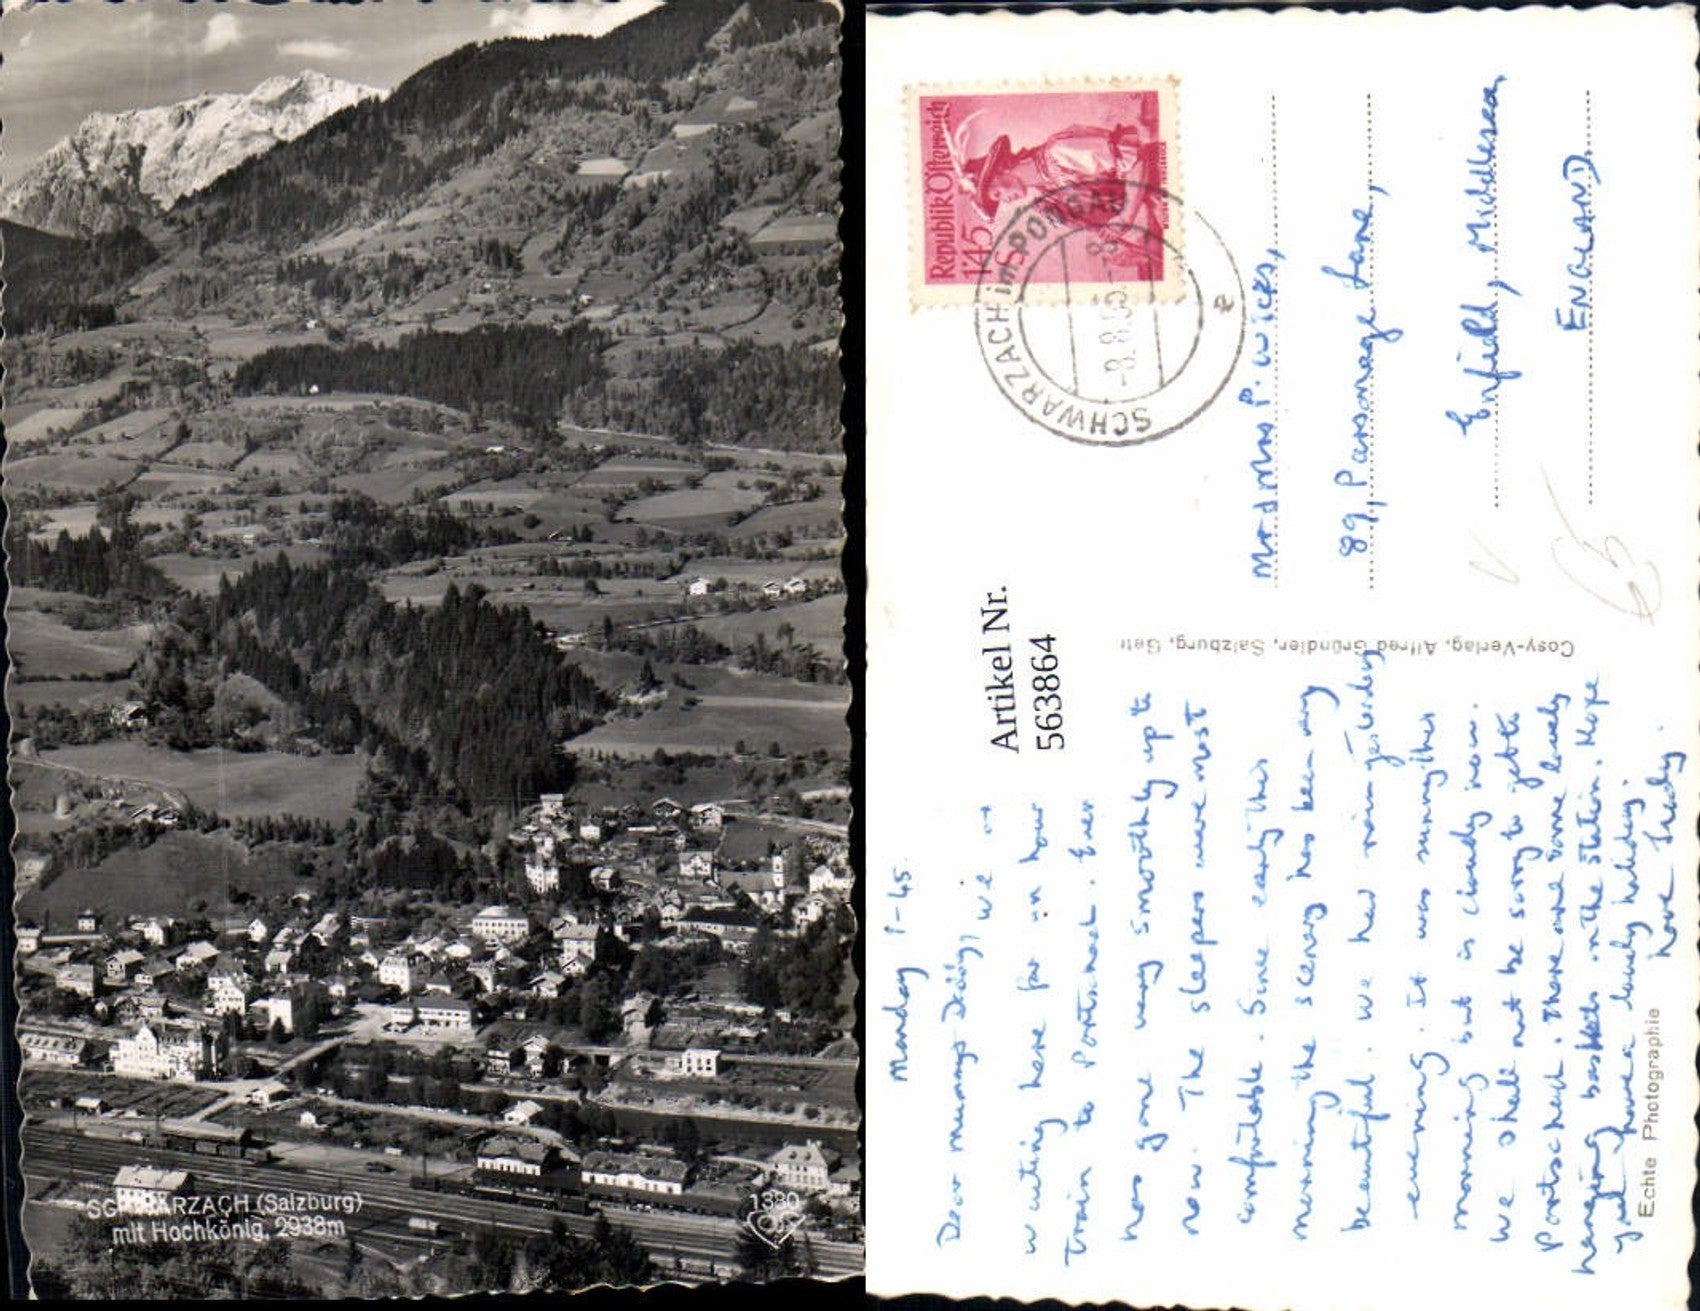 SCHWARZACH (Salzburg)
mit Hochkönig, 2938m
1380
Republik Österreich
1'45
S
SCHWARZACH im PONGAU
-8.8.55
Artikel Nr.
563864
Cosy-Verlag, Alfred Gründler, Salzburg, Getr
Echte Photographie
Mr and Mrs P. Wicks,
89, Parsonage Lane,
Enfield, Middlesex
ENGLAND.
Monday 9-45
Dear Mummy & Daddy, We are
waiting here for an hour
train to Portschach. Ever
has gone very smoothly up to
now. The sleepers were most
comfortable. Since early this
morning the scenery has been very
beautiful. We had rain yesterday
evening. It was sunny this
morning but is cloudy now.
We shall not be sorry to get to
Portschach. There are some lovely
hanging baskets in the station. Hope
you have a lovely holiday.
Love